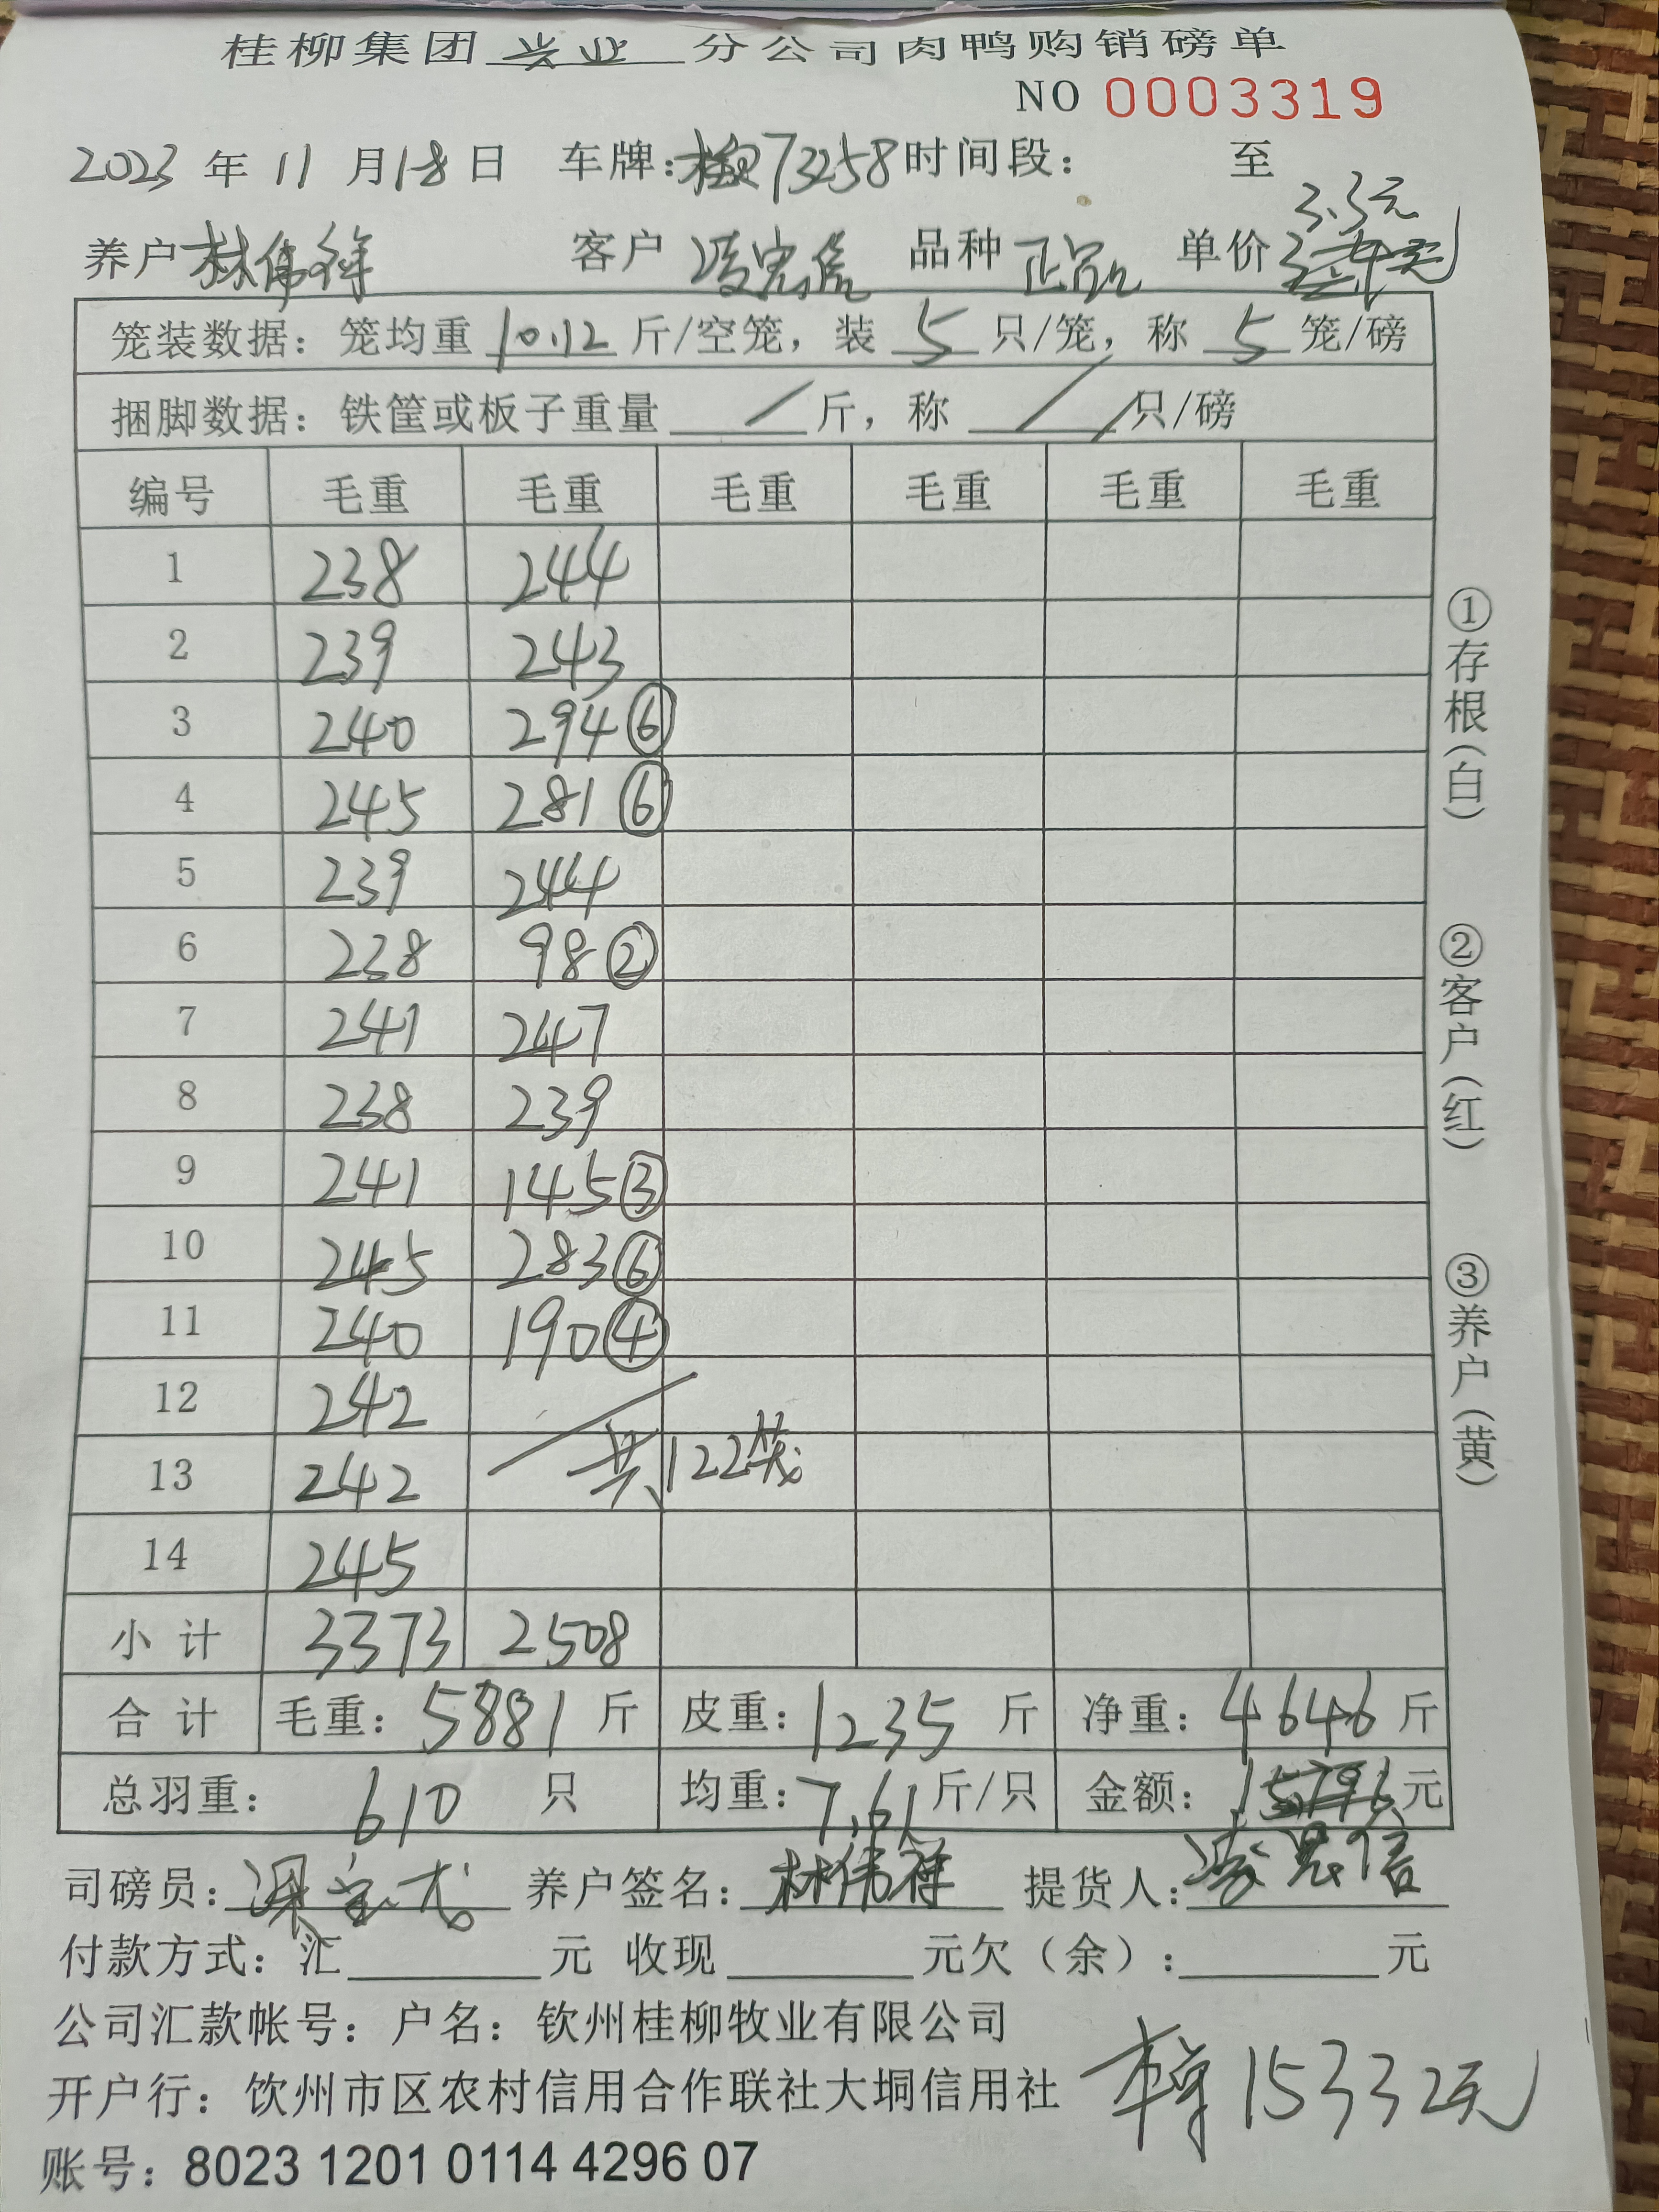 桂柳集团 兴业 分公司肉鸭购销磅单
NO 0003319
2023 年 11 月 18 日 车牌: 73258 时间段: 至
3.3元
养户 林伟祥 客户 凌忠信 品种 正品 单价
笼装数据: 笼均重 10.12 斤/空笼, 装 5 只/笼, 称 5 笼/磅
捆脚数据: 铁筐或板子重量 / 斤, 称 / 只/磅
编号 毛重 毛重 毛重 毛重 毛重 毛重
1 238 244
2 239 243
3 240 294 ⑥
4 245 281 ⑥
5 239 244
6 238 98 ②
7 241 247
8 238 239
9 241 145 ③
10 245 283 ⑥
11 240 190 ④
12 242
13 242 共122笼
14 245
小计 3373 2508
合计 毛重: 5881 斤 皮重: 1235 斤 净重: 4646 斤
总羽重: 610 只 均重: 7.61 斤/只 金额: 15796 元
司磅员: 养户签名: 林伟祥 提货人: 凌忠信
付款方式: 汇 元 收现 元欠(余): 元
公司汇款帐号: 户名: 钦州桂柳牧业有限公司
开户行: 钦州市区农村信用合作联社大垌信用社
本单15332元
账号: 8023 1201 0114 4296 07
①存根(白)
②客户(红)
③养户(黄)